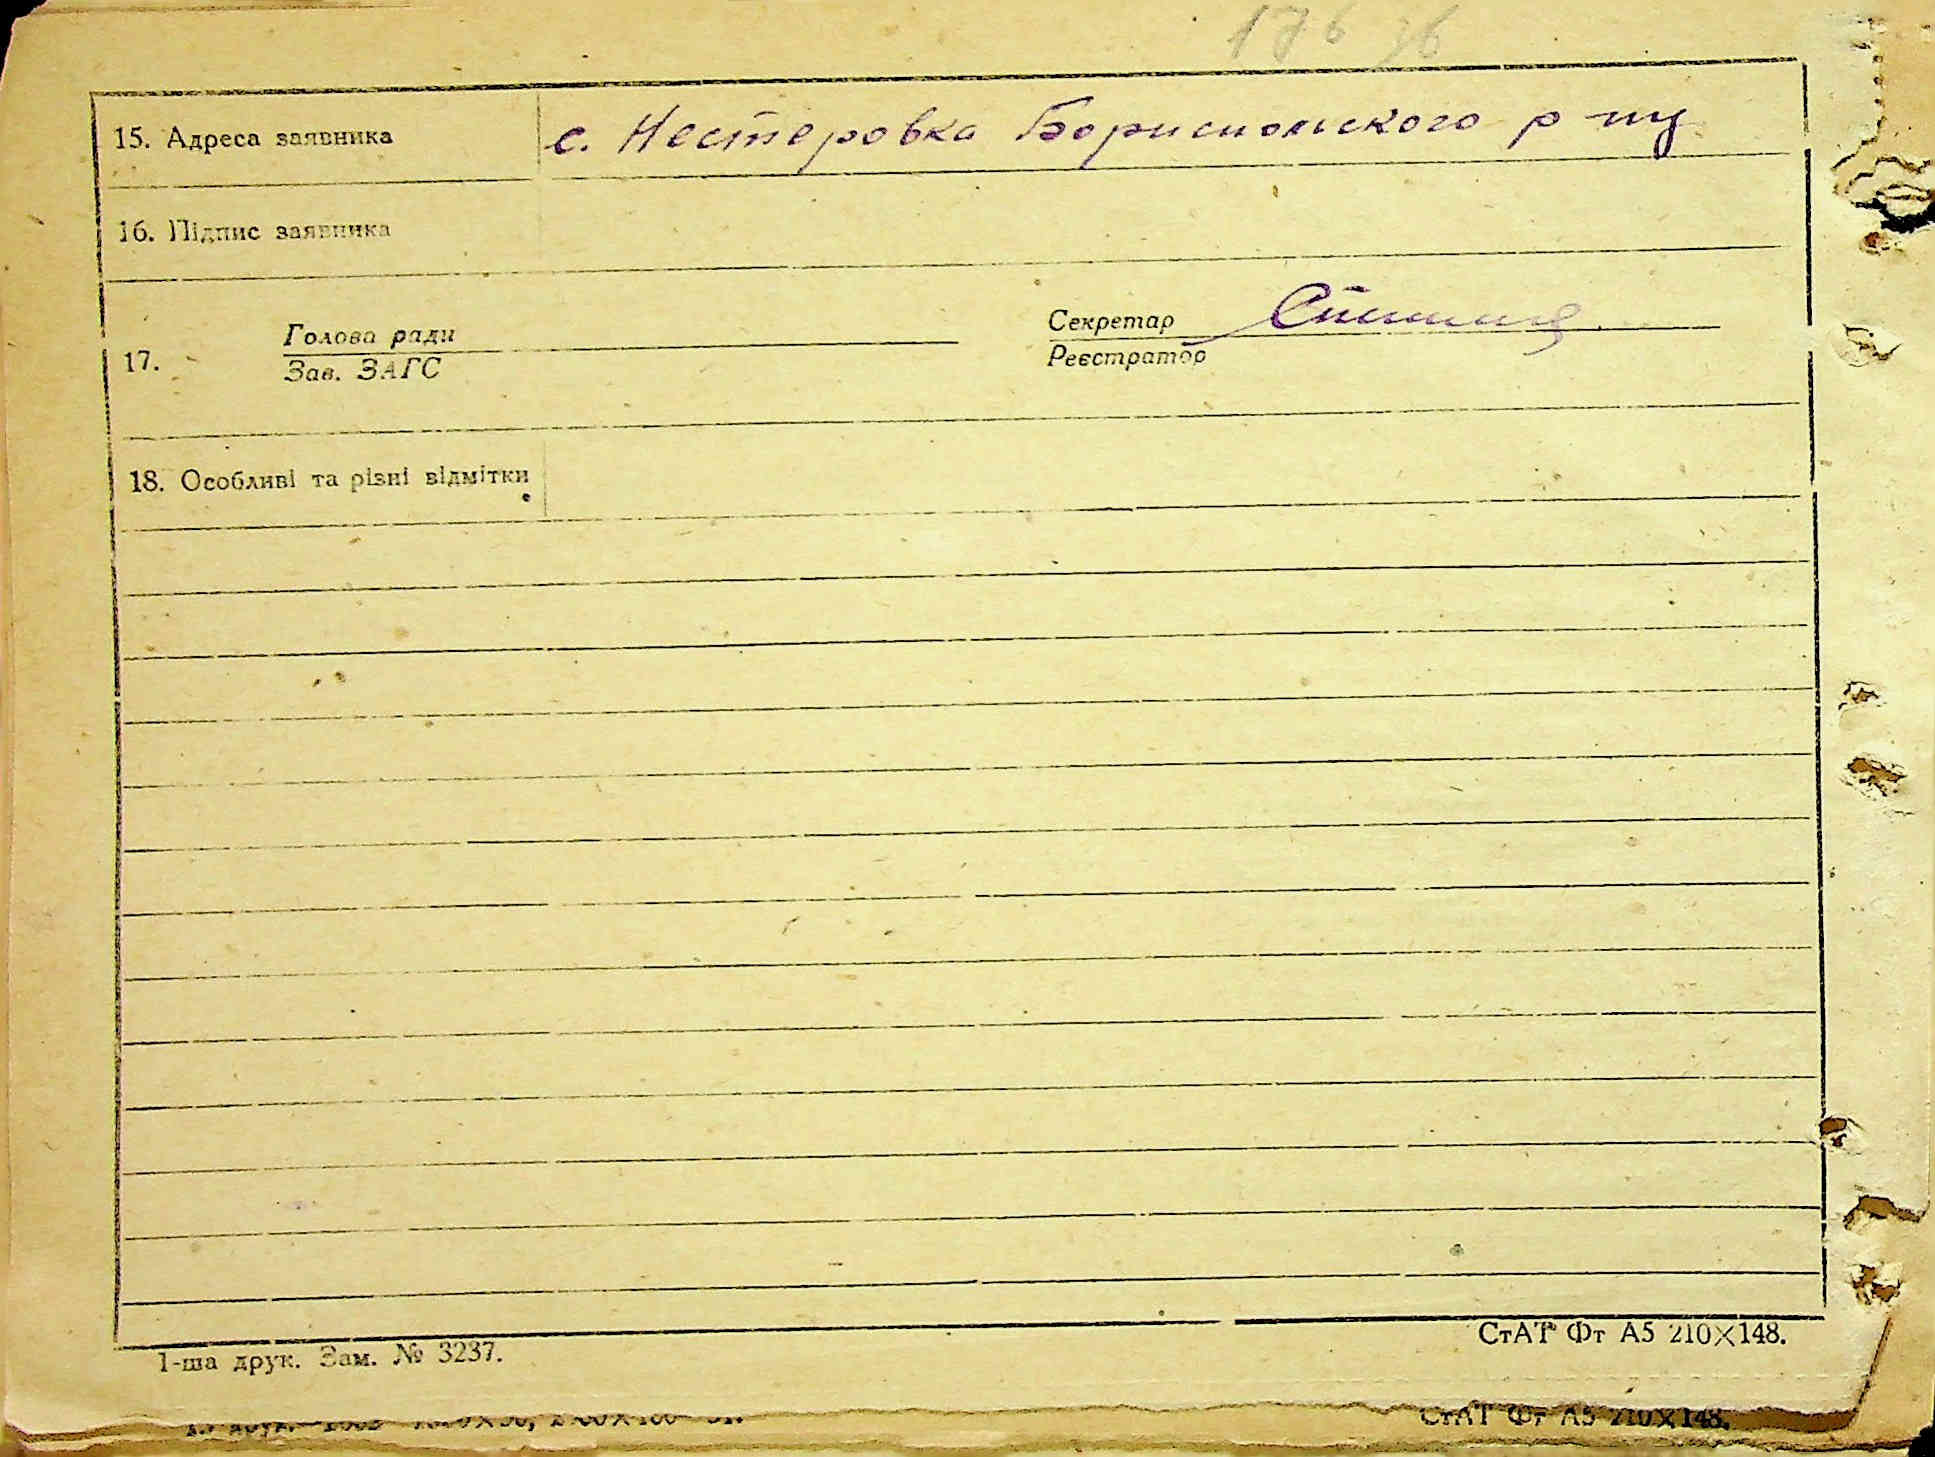 176 зв
15. Адреса заявника с. Нестеровка Бориспольского р-ну
16. Підпис заявника
17. Голова ради
Зав. ЗАГС
Секретар
Реєстратор
18. Особливі та різні відмітки
1-ша друк. Зам. № 3237.
СтАТ Фт А5 210×148.
СтАТ Фт А5 210×148.